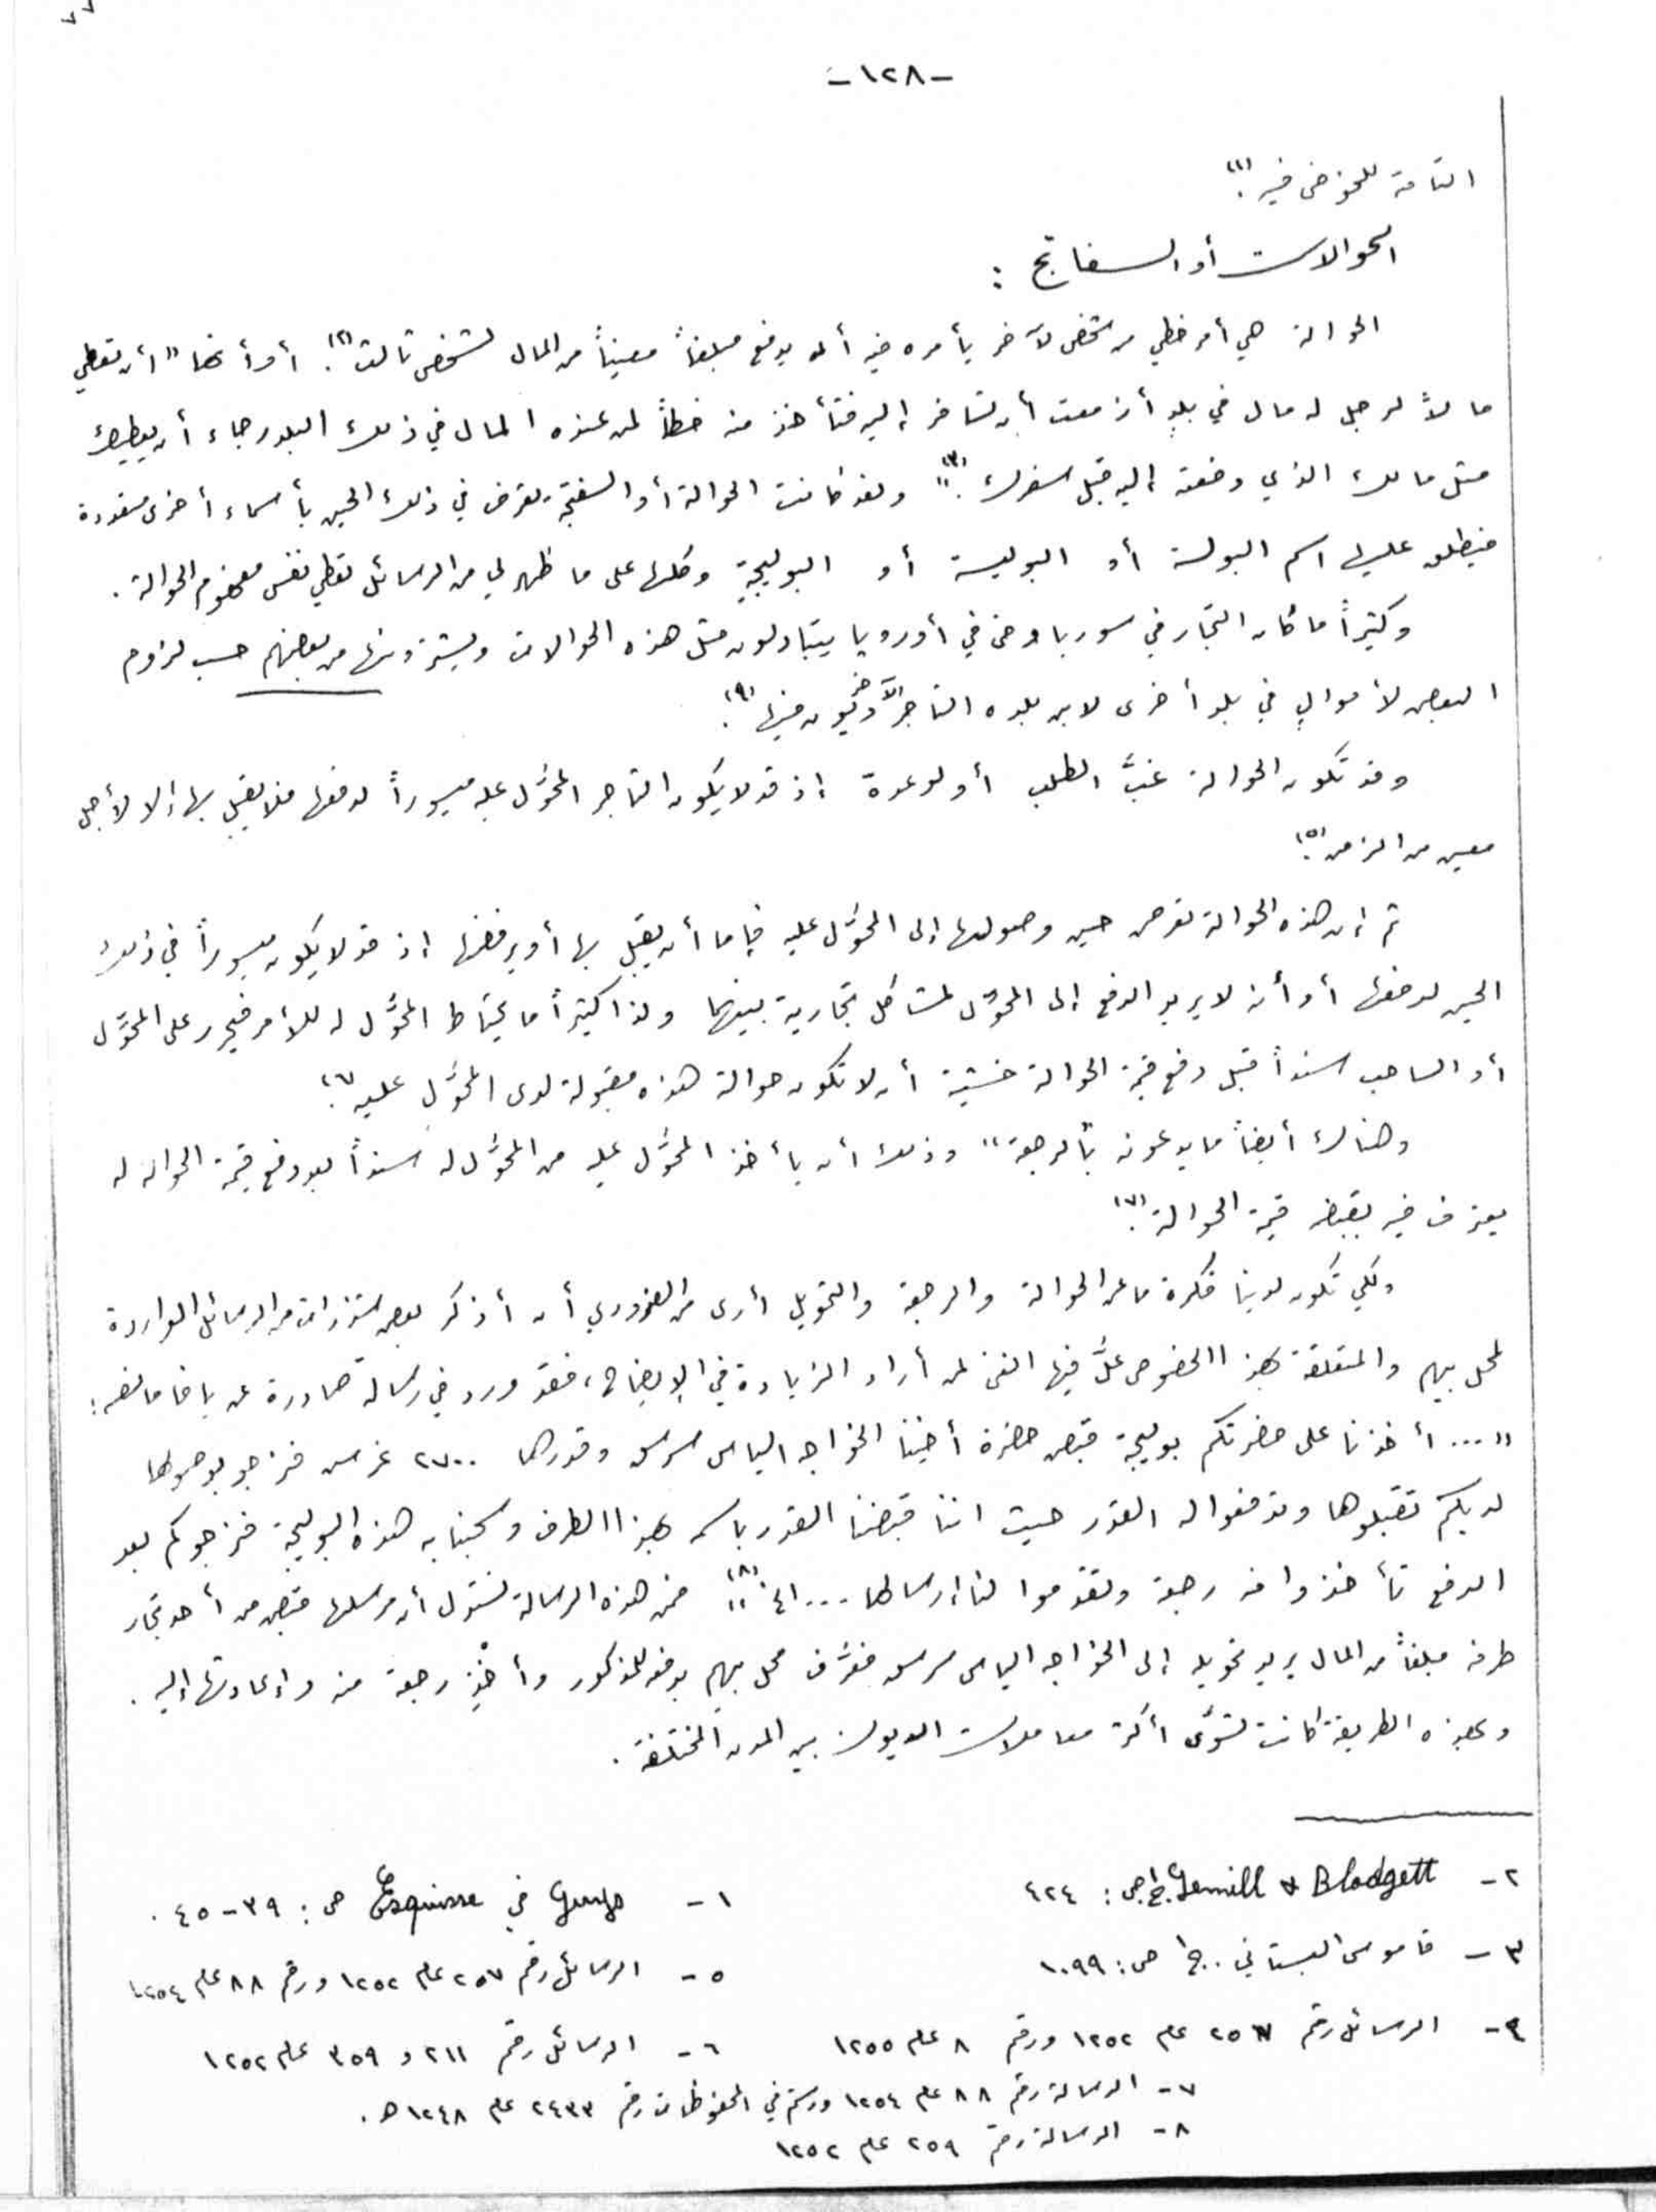 -١٢٨-
التامة للخوض فيه (١).
الحوالات أو السفاتج :
الحوالة هي أمر خطي من شخص لآخر يأمره فيه أن يدفع مبلغاً معيناً من المال لشخص ثالث (٢). أو أنها "أن تعطي
مالاً لرجل له مال في بلدٍ أزمعت أن تسافر إليه فتأخذ منه خطاً لمن عنده المال في ذلك البلد رجاء أن يعطيك
مثل مالك الذي دفعته إليه قبل سفرك" (٣). ولقد كانت الحوالة أو السفتجة تعرف في ذلك الحين بأسماء أخرى متعددة
فيطلق عليها اسم البولسة أو البوليسة أو البوليجةِ وكلها على ما ظهر لي من الرسائل تعطي نفس مفهوم الحوالة .
وكثيراً ما كان التجار في سوريا وحتى في أوروبا يتبادلون مثل هذه الحوالات ويشترونها من بعضهم حسب لزوم
البعض لأموالٍ في بلد أخرى لابن بلده التاجر الآخر ديون فيها (٤).
وقد تكون الحوالة غبَّ الطلب أو لوعدة إذ قد لا يكون التاجر المحوَّل عليه ميسوراً لدفعها فلا يقبل بها إلا لأجل
معين من الزمن (٥).
ثم إن هذه الحوالة تعرض حين وصولها إلى المحوَّل عليه فإما أن يقبل بها أو يرفضها إذ قد لا يكون ميسوراً في ذلك
الحين لدفعها أو أنه لا يريد الدفع إلى المحوّل لمشاكل تجارية بينهما ولذا كثيراً ما يحتاط المحوَّل له للأمر فيحرر على المحوّل
أو الساحب سنداً قبل دفع قيمة الحوالة خشية أن لا تكون حوالة هذه مقبولة لدى المحوَّل عليه (٦).
وهناك أيضاً ما يدعونه "بالرجعة" وذلك أن يأخذ المحوَّل عليه من المحوَّل له سنداً بعد دفع قيمة الحوالة له
يعترف فيه بقبضه قيمة الحوالة (٧).
ولكي تكون لدينا فكرة ما عن الحوالة والرجعة والتحويل أرى من الضروري أن أذكر بعض شذرات من الرسائل الواردة
لمحل بيهم والمتعلقة بهذا الخصوص علَّ فيها الغنى لمن أراد الزيادة في الإيضاح، فقد ورد في رسالة صادرة عن يافا ما نصه :
"... أخذنا على حضرتكم بوليجة قبض حضرة أخينا الخواجه الياس سرسق وقدرها ٢٧٠٠ غرس فنرجو بوصولها
لديكم تقبلوها وتدفعوا له القدر حيث اننا قبضنا القدر باسمه بهذا الطرف وسحبنا به هذه البوليجة فنرجوكم بعد
الدفع تأخذوا منه رجعة وتقدموا لنا إرسالها ... الخ" (٨). فمن هذه الرسالة نستدل أن مرسلها قبض من أحد تجار
طرفه مبلغاً من المال يريد تحويله إلى الخواجه الياس سرسق فعرَّف محل بيهم بدفعه للمذكور وأخْذِ رجعة منه وإعادتها إليه .
وبهذه الطريقة كانت تسوَّى أكثر معاملات الديون بين المدن المختلفة .
١- Guys في Esquisse ص : ٣٩-٤٥ .
٢- Gemill & Blodgett ج١ ص : ٤٢٤
٣- قاموس البستاني . ج١ ص : ١٠٩٩
٥- الرسائل رقم ٢٥٧ عام ١٢٥٢ ورقم ٨٨ عام ١٢٥٤
٤- الرسائل رقم ٢٥٧ عام ١٢٥٢ ورقم ٨ عام ١٢٥٥
٦- الرسائل رقم ٢١١ و ٣٥٩ عام ١٢٥٢
٧- الرسالة رقم ٨٨ عام ١٢٥٤ ورستم في المحفوظات رقم ٢٤٣٣ عام ١٢٤٨ هـ .
٨- الرسالة رقم ٢٥٩ عام ١٢٥٢